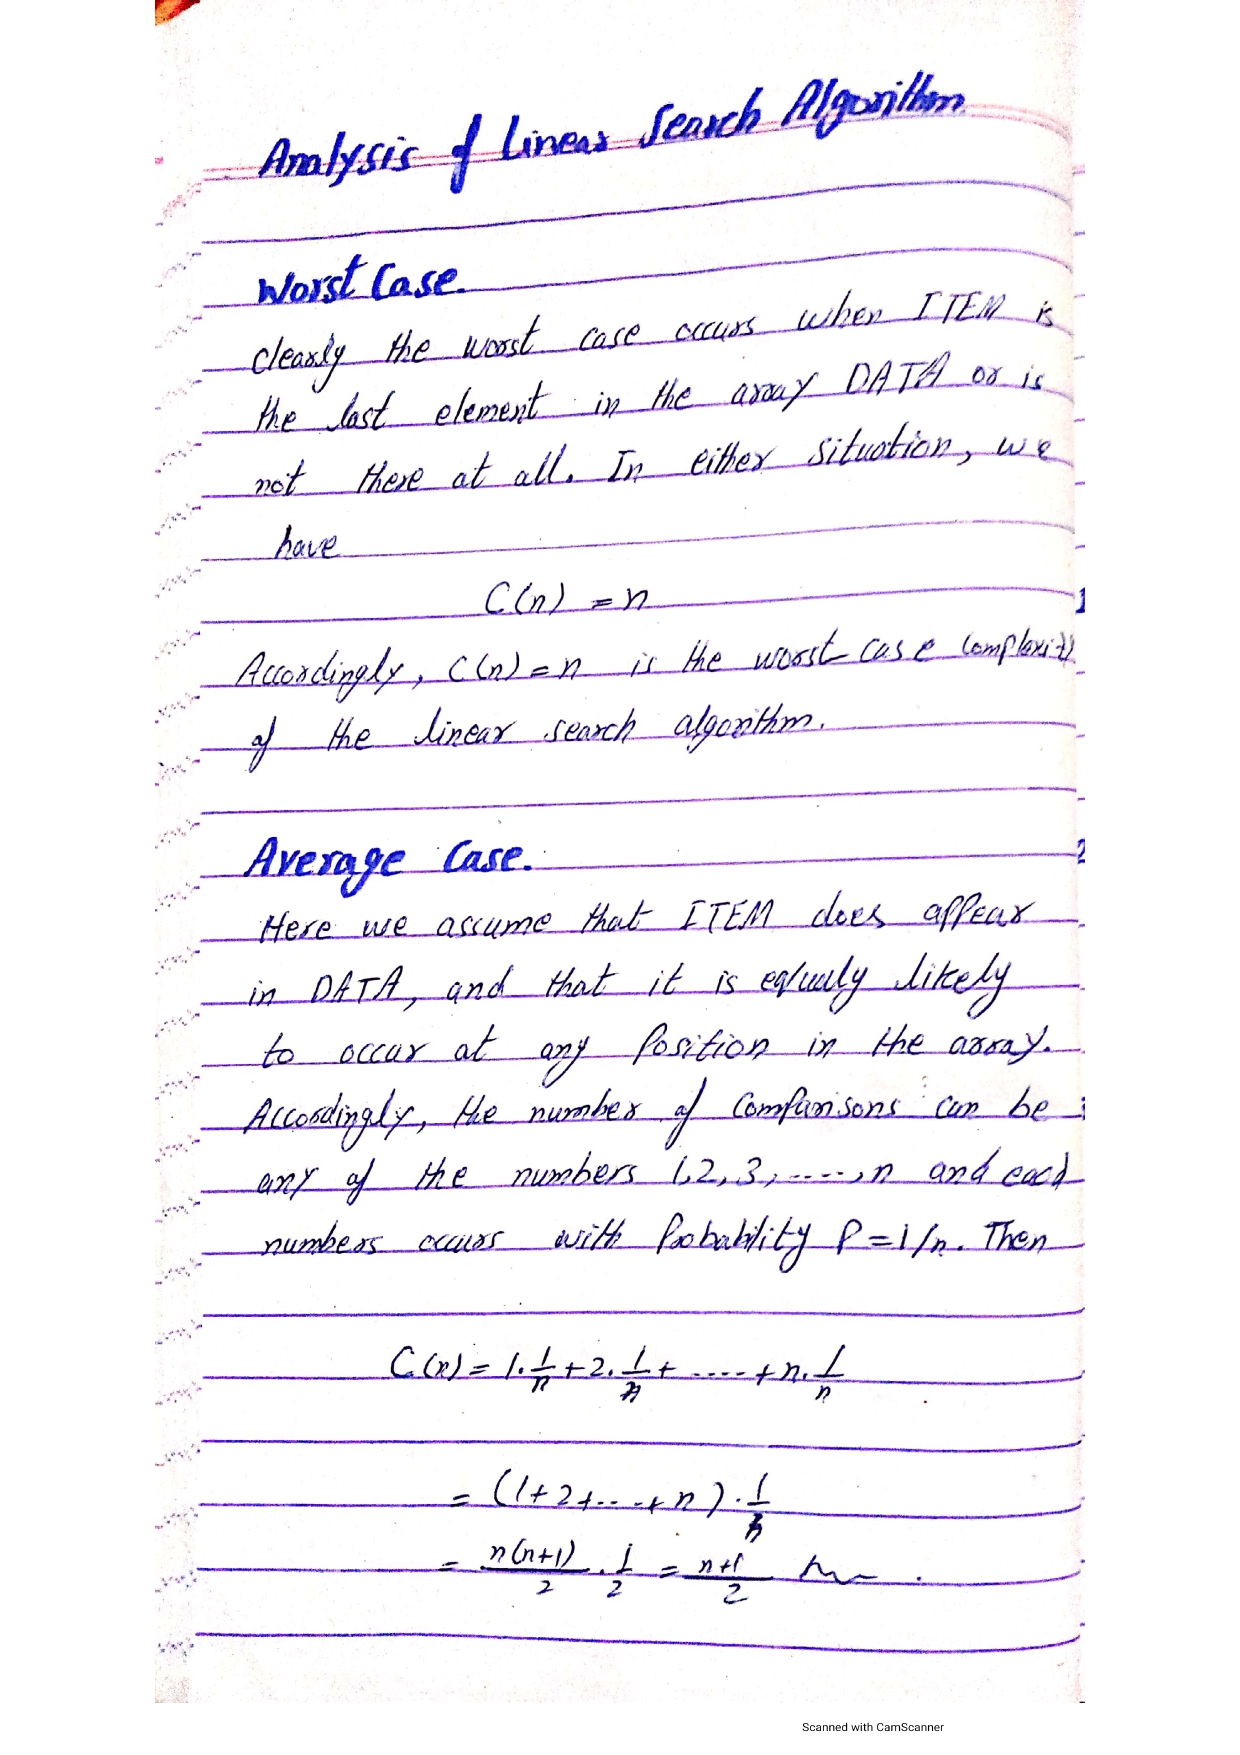 Analysis of Linear Search Algorithm
Worst Case.
clearly the worst case occurs when ITEM is
the last element in the array DATA or is
not there at all. In either situation, we
have
C(n) = n
Accordingly, C(n) = n is the worst case complexity
of the linear search algorithm.
Average Case.
Here we assume that ITEM does appear
in DATA, and that it is equally likely
to occur at any Position in the array.
Accordingly, the number of Comparisons can be
any of the numbers 1,2,3,....,n and each
numbers occurs with Probability P=1/n. Then
C(n) = 1.1/n + 2.1/n + .... + n.1/n
= (1+2+....+n).1/n
= n(n+1)/2 . 1/2 = n+1/2
Scanned with CamScanner